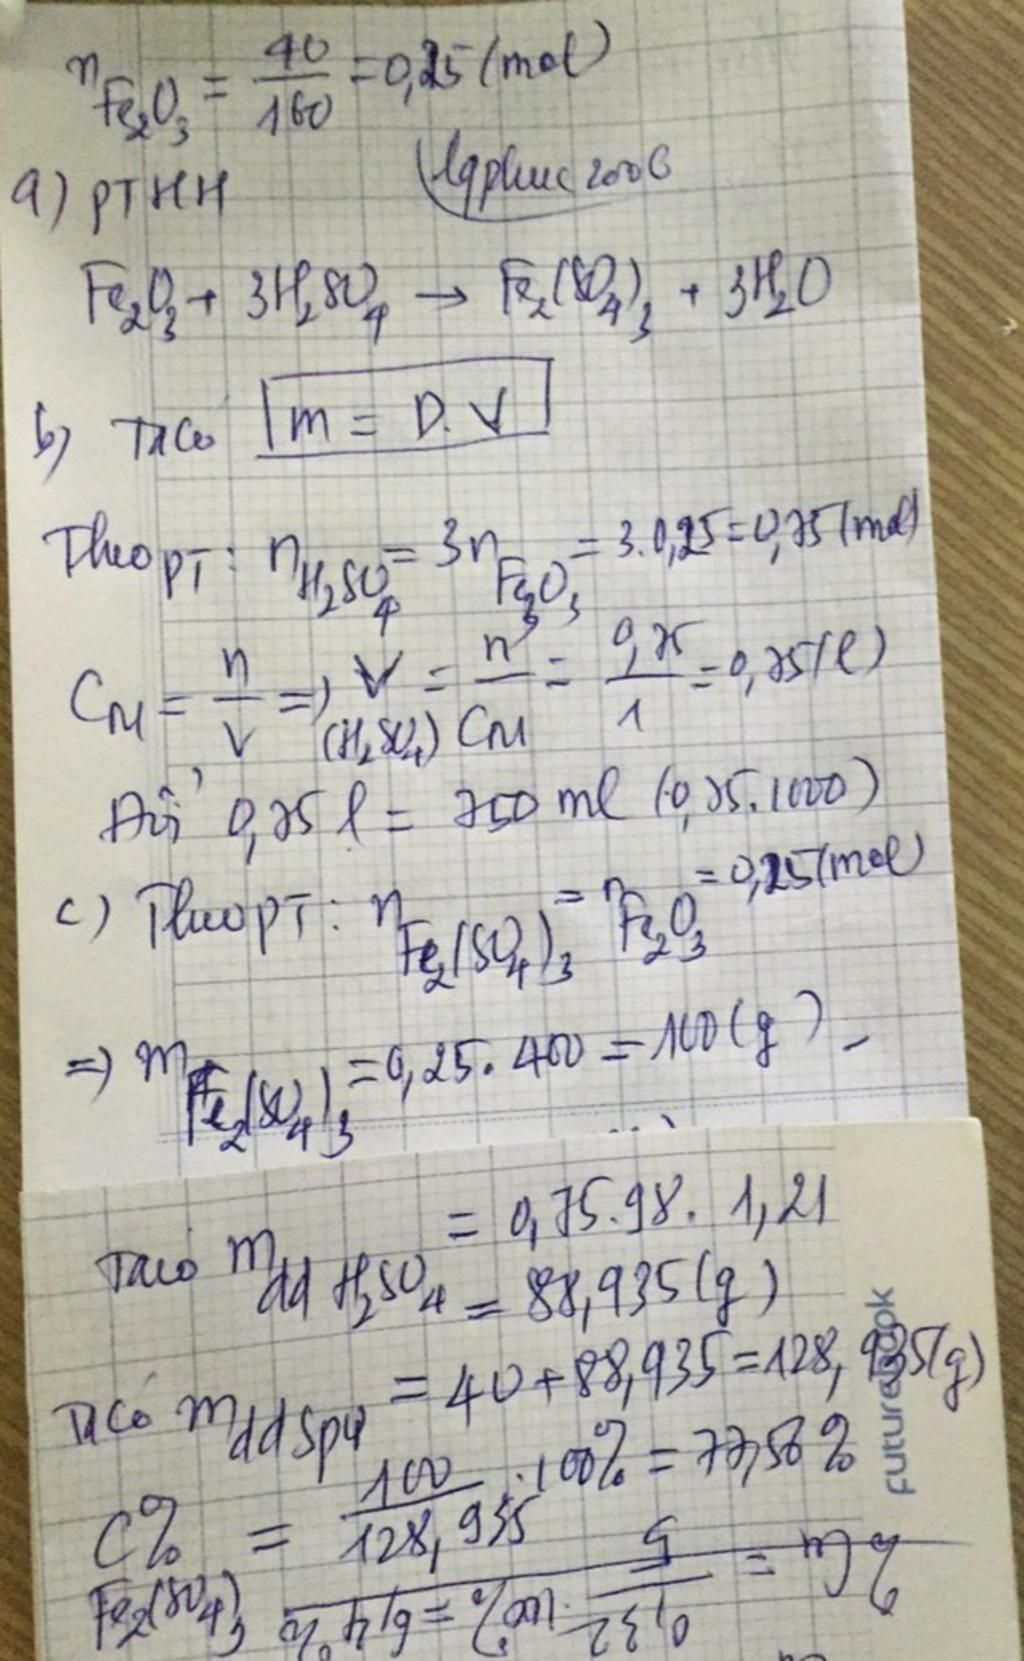 nFe₂O₃ = 40/160 = 0,25 (mol)
a) PTHH
Fe₂O₃ + 3H₂SO₄ → Fe₂(SO₄)₃ + 3H₂O
b) Ta có m = D.V
Theo PT: nH₂SO₄ = 3nFe₂O₃ = 3.0,25 = 0,75 (mol)
CM = n/V => V(H₂SO₄) = n/CM = 0,75/1 = 0,75 (l)
Đổi 0,75 l = 750 ml (0,75.1000)
c) Theo PT: nFe₂(SO₄)₃ = nFe₂O₃ = 0,25 (mol)
=> mFe₂(SO₄)₃ = 0,25.400 = 100 (g)
Ta có mdd H₂SO₄ = 0,75.98.1,21
= 88,935 (g)
Ta có mddspứ = 40 + 88,935 = 128,935 (g)
C% Fe₂(SO₄)₃ = 100/128,935 .100% = 77,56%
futurebook